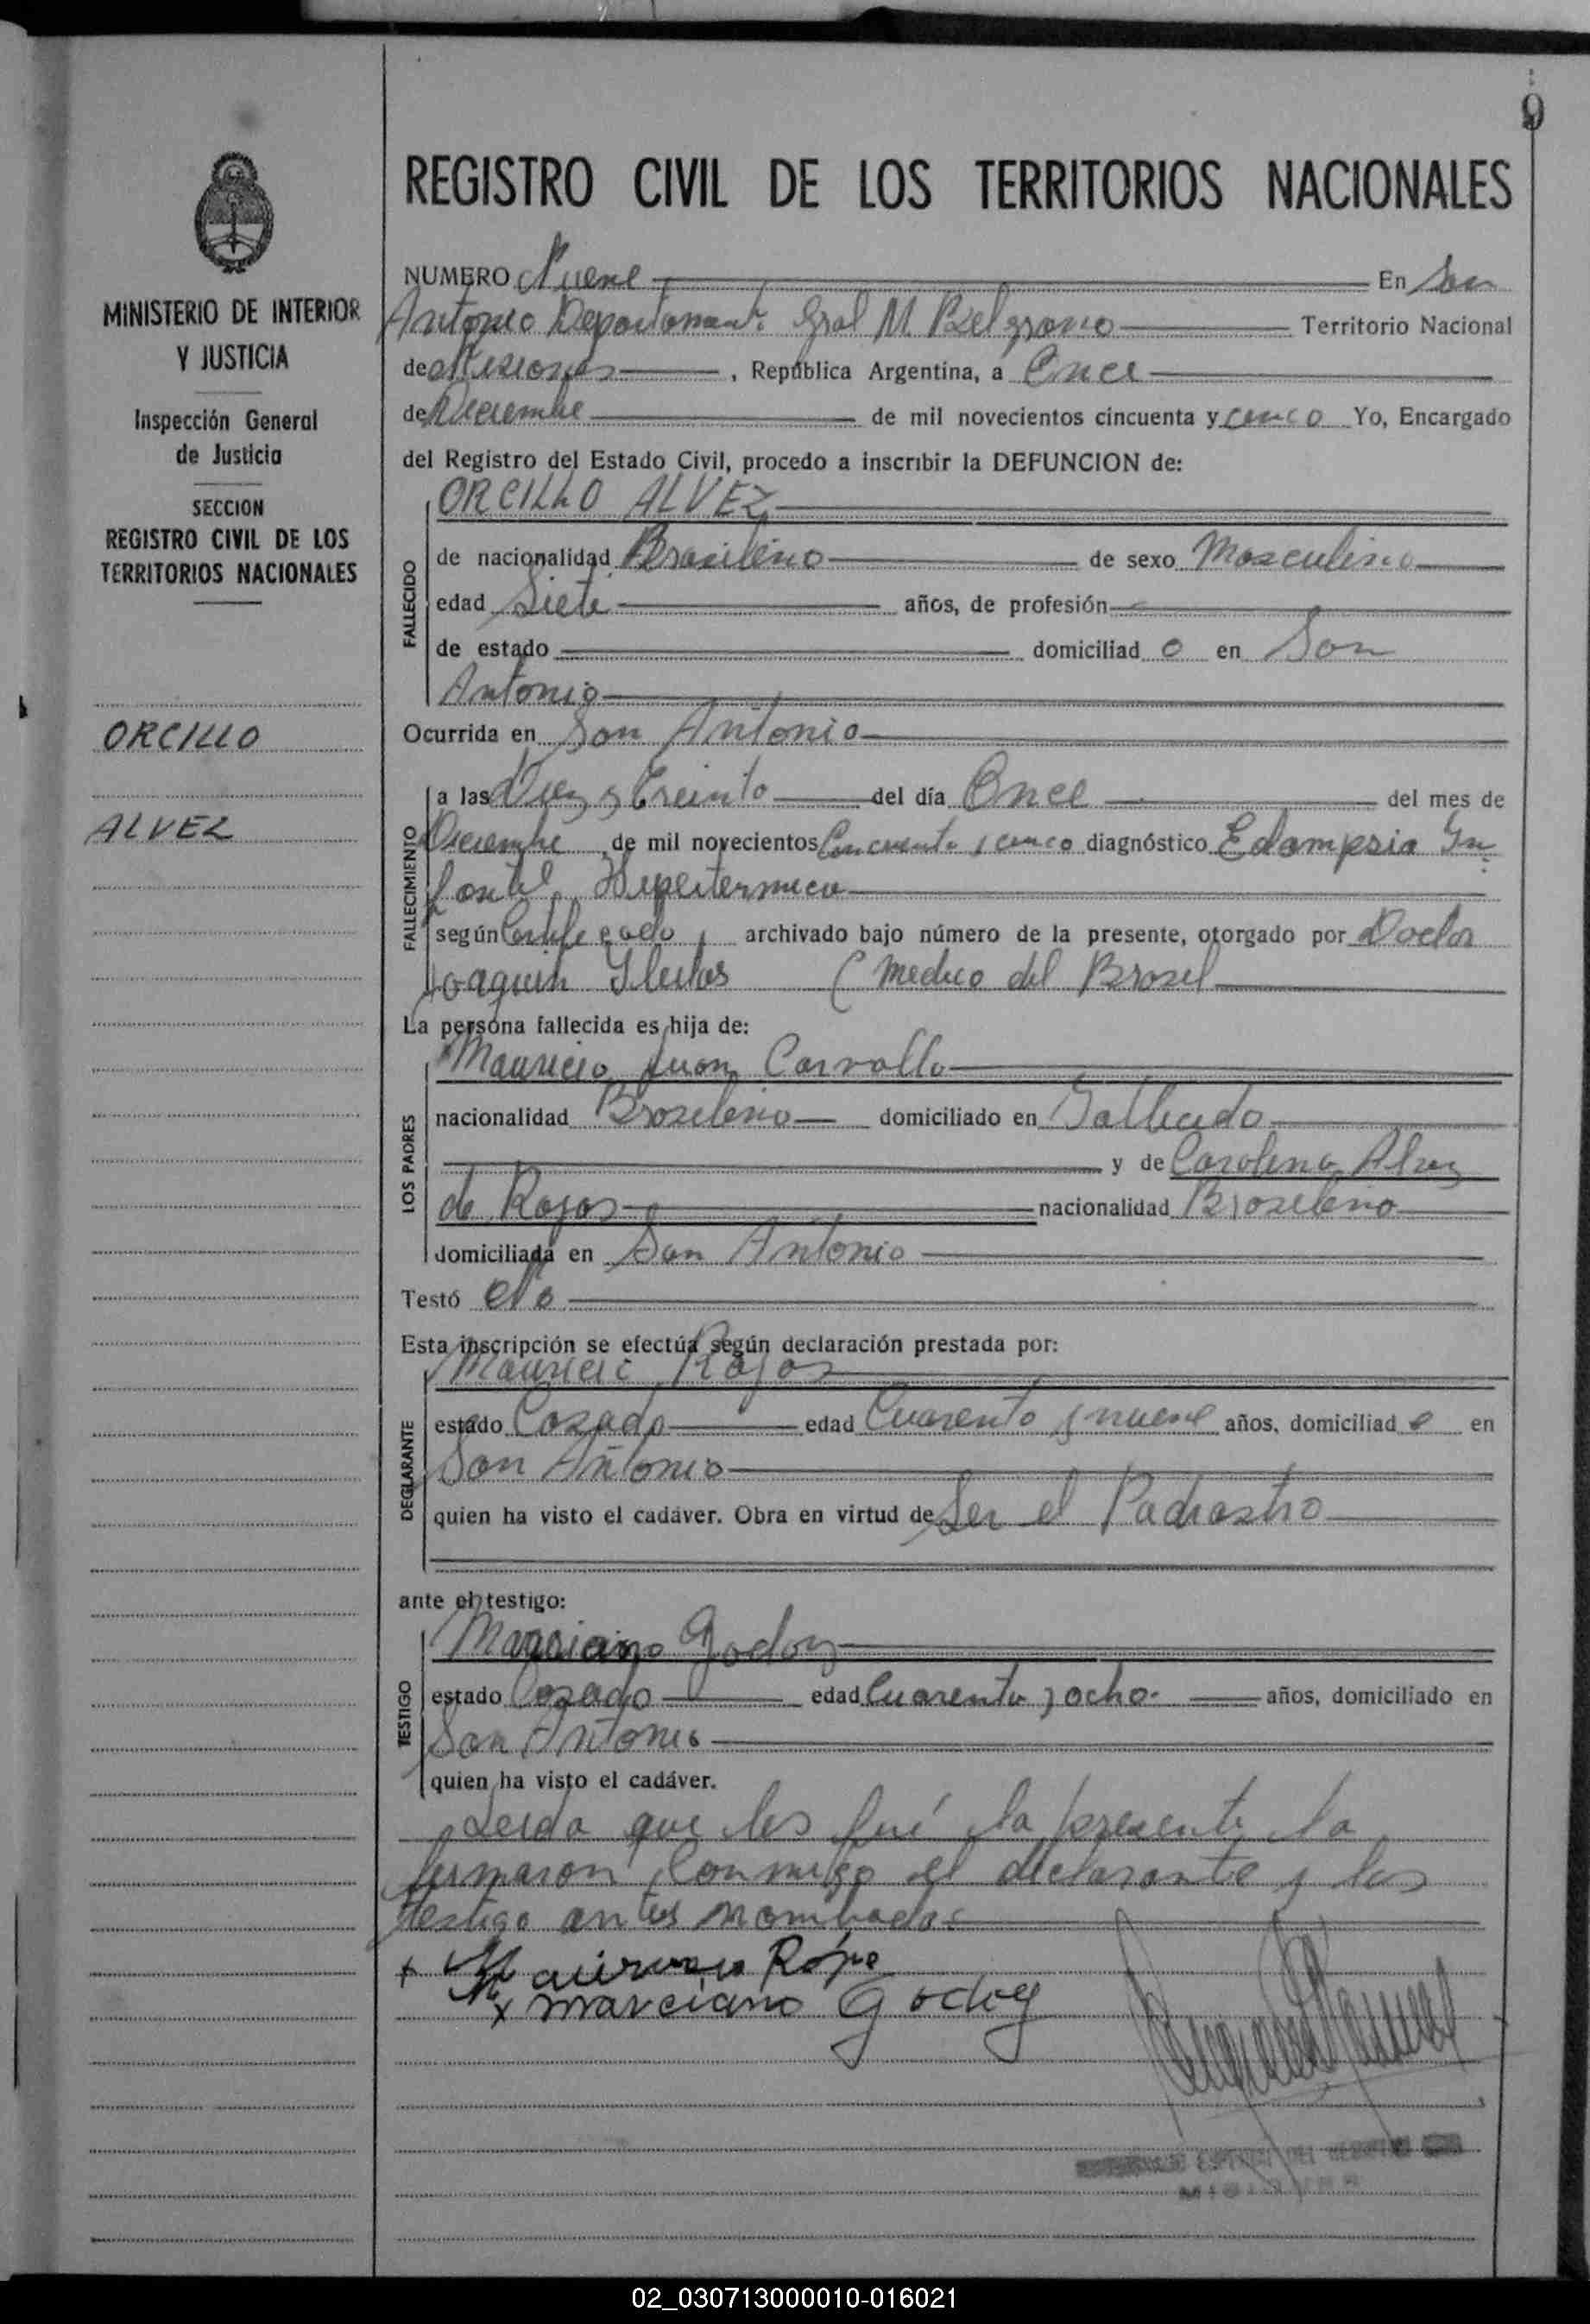 9
REGISTRO CIVIL DE LOS TERRITORIOS NACIONALES
MINISTERIO DE INTERIOR
Y JUSTICIA
Inspección General
de Justicia
SECCION
REGISTRO CIVIL DE LOS
TERRITORIOS NACIONALES
ORCILLO
ALVEZ
NUMERO Nueve En San
Antonio Departamant. Gral M Belgrano Territorio Nacional
de Misiones, República Argentina, a Once
de Diciembre de mil novecientos cincuenta y cinco Yo, Encargado
del Registro del Estado Civil, procedo a inscribir la DEFUNCION de:
ORCILLO ALVEZ
FALLECIDO
de nacionalidad Brasileño de sexo Masculino
edad Siete años, de profesión
de estado domiciliad o en San
Antonio
Ocurrida en San Antonio
FALLECIMIENTO
a las Diez y Treinta del día Once del mes de
Diciembre de mil novecientos Cincuenta y cinco diagnóstico Eclampsia In
fantil Hipertermica
según Certificado archivado bajo número de la presente, otorgado por Doctor
Joaquin (Medico del Brasil
La persona fallecida es hija de:
LOS PADRES
Mauricio Juan Carvallo
nacionalidad Brasileno domiciliado en Fallecido
y de Carolina Alvez
de Rojas nacionalidad Brasileno
domiciliada en San Antonio
Testó No
Esta inscripción se efectúa según declaración prestada por:
DECLARANTE
Mauricio Rojas
estado Casado edad Cuarenta y nueve años, domiciliad o en
San Antonio
quien ha visto el cadáver. Obra en virtud de Ser el Padrastro
ante el testigo:
TESTIGO
Marciano Godoy
estado Casado edad Cuarenta y ocho. años, domiciliado en
San Antonio
quien ha visto el cadáver.
Leida que les fué la presente la
firmaron conmigo el declarante y los
testigo antes nombrados
+ Rója
x marciano Godoy
02_030713000010-016021